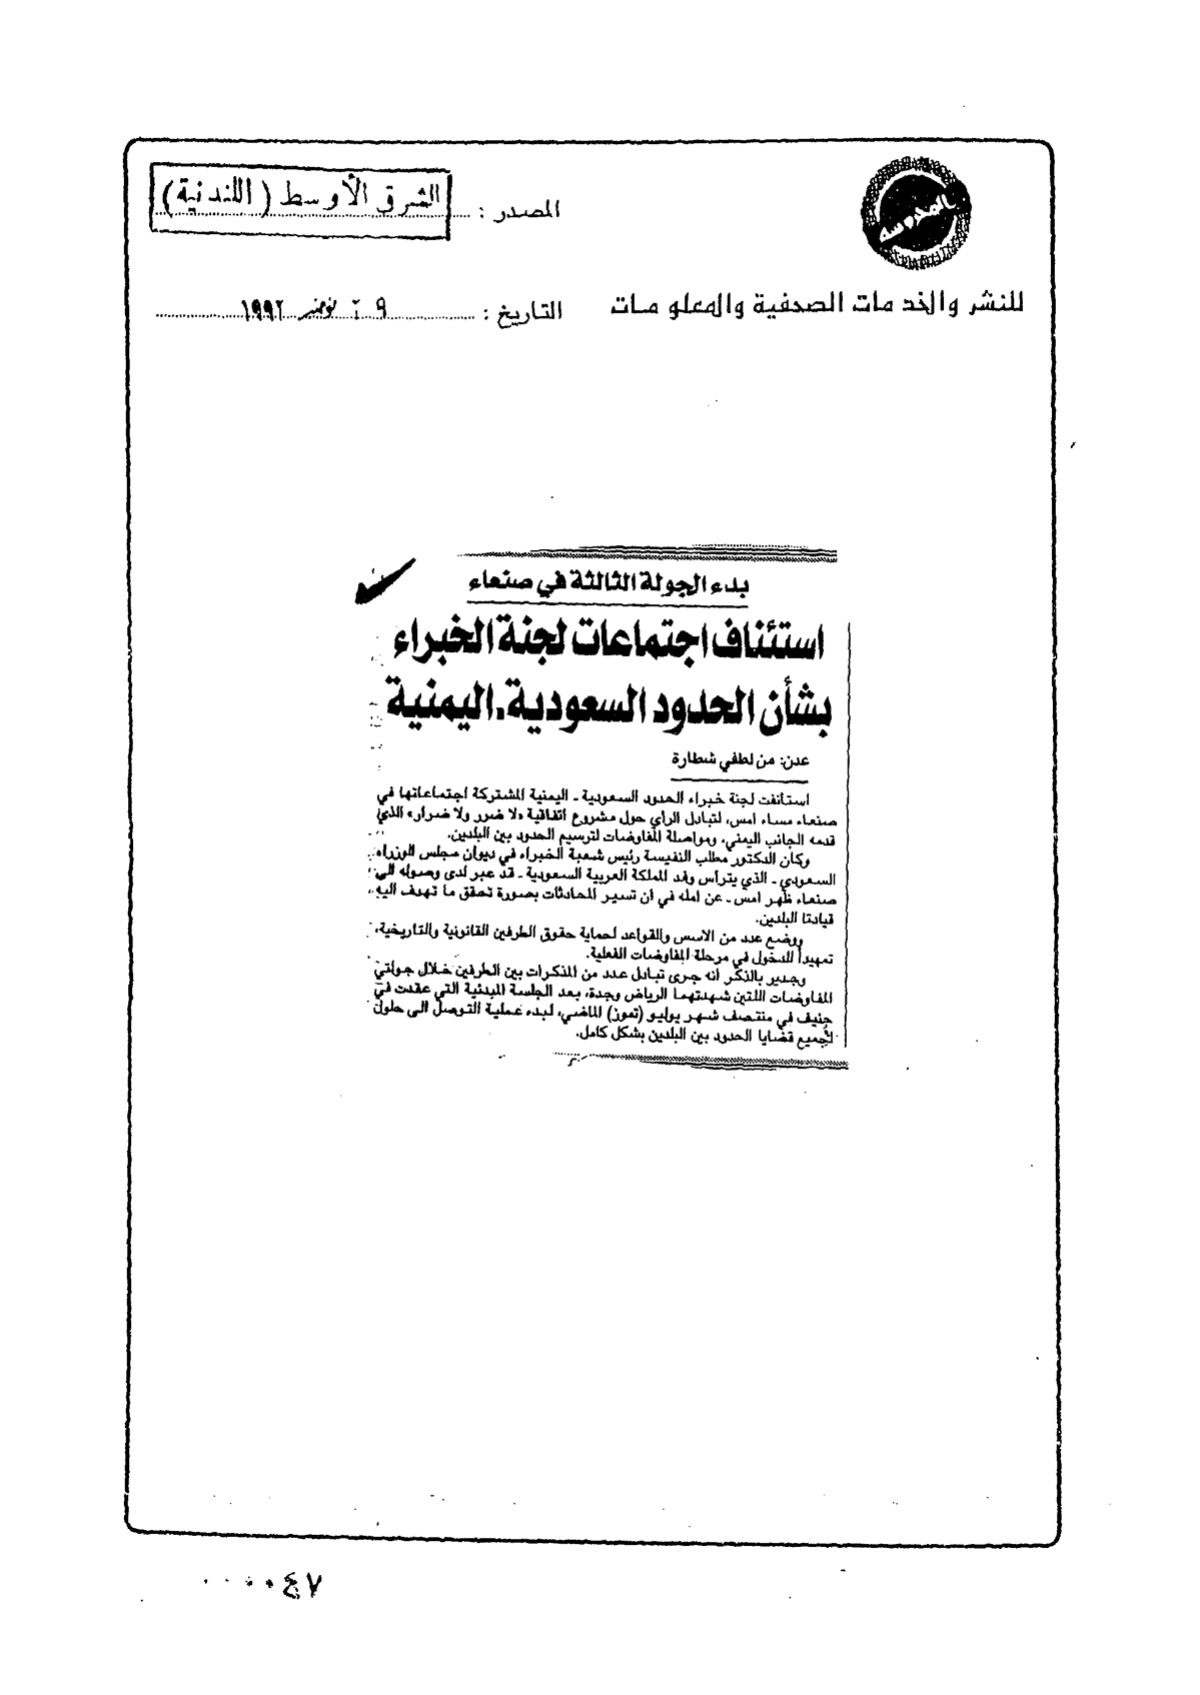 المحروسة
للنشر والخدمات الصحفية والمعلومات
المصدر : الشرق الأوسط (اللندنية)
التاريخ : ٩ نوفمبر ١٩٩٢
بدء الجولة الثالثة في صنعاء
استئناف اجتماعات لجنة الخبراء
بشأن الحدود السعودية ـ اليمنية
عدن: من لطفي شطارة
استأنفت لجنة خبراء الحدود السعودية ـ اليمنية المشتركة اجتماعاتها في
صنعاء مساء امس، لتبادل الراي حول مشروع اتفاقية «لا ضرر ولا ضرار» الذي
قدمه الجانب اليمني، ومواصلة المفاوضات لترسيم الحدود بين البلدين.
وكان الدكتور مطلب النفيسة رئيس شعبة الخبراء في ديوان مجلس الوزراء
السعودي ـ الذي يترأس وفد المملكة العربية السعودية ـ قد عبر لدى وصوله الى
صنعاء ظهر امس ـ عن امله في ان تسير المحادثات بصورة تحقق ما تهدف اليه
قيادتا البلدين.
ووضع عدد من الاسس والقواعد لحماية حقوق الطرفين القانونية والتاريخية،
تمهيداً للدخول في مرحلة المفاوضات الفعلية.
وجدير بالذكر انه جرى تبادل عدد من المذكرات بين الطرفين خلال جولتي
المفاوضات اللتين شهدتهما الرياض وجدة، بعد الجلسة المبدئية التي عقدت في
جنيف في منتصف شهر يوليو (تموز) الماضي، لبدء عملية التوصل الى حلول
لجميع قضايا الحدود بين البلدين بشكل كامل.
٠٠٠٠٤٧